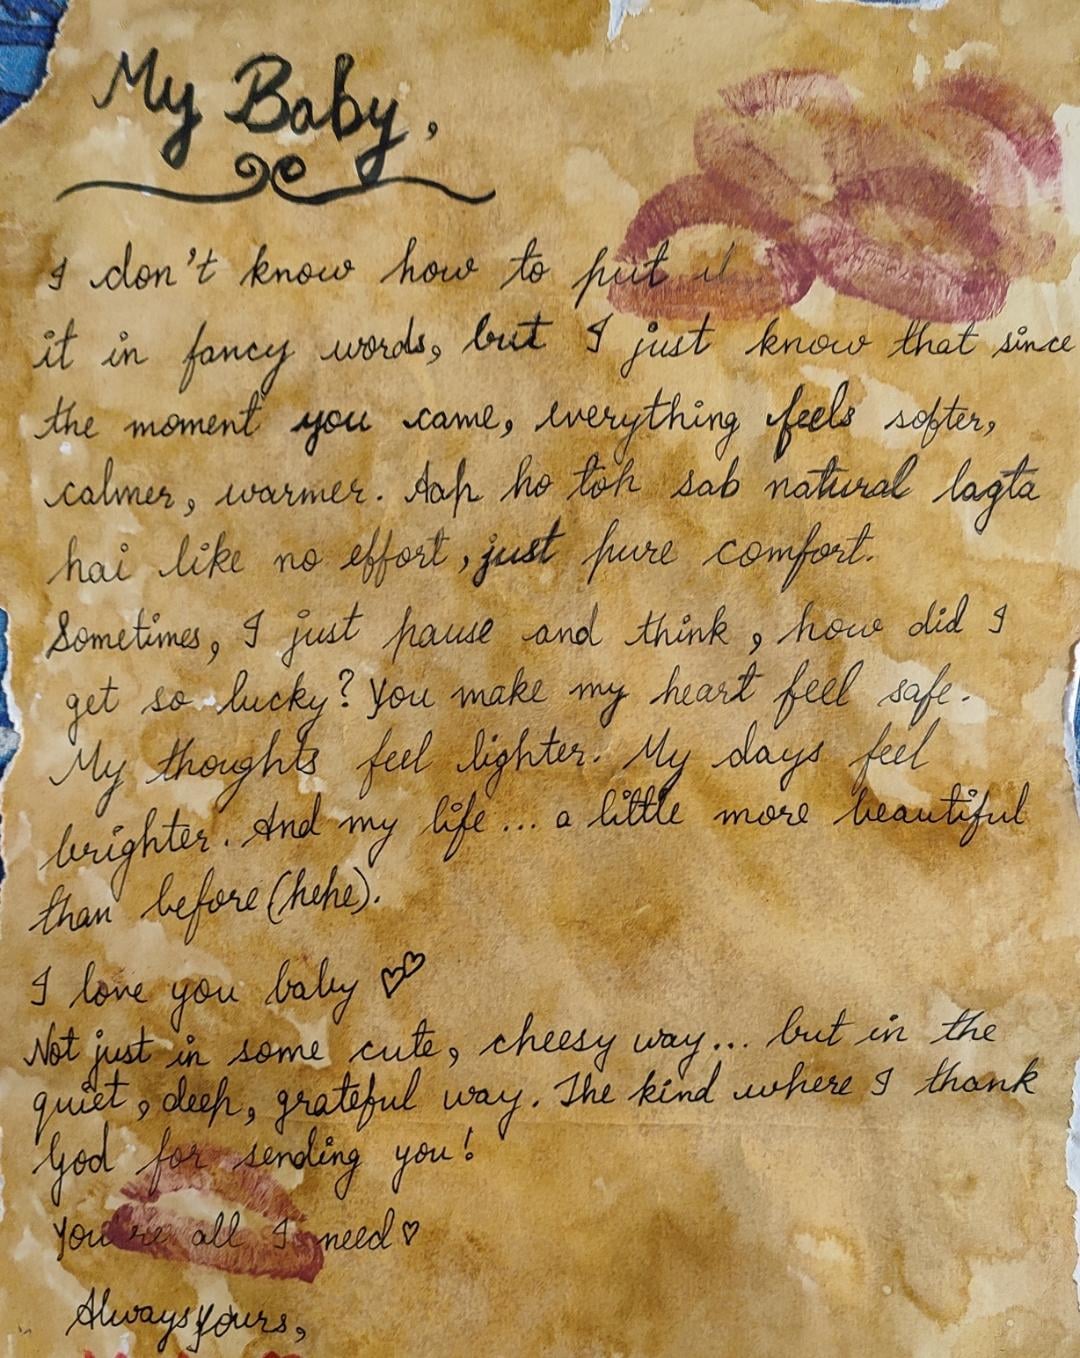 My Baby,
I don't know how to put
it in fancy words, but I just know that since
the moment you came, everything feels softer,
calmer, warmer. Aap ho toh sab natural lagta
hai like no effort, just pure comfort.
Sometimes, I just pause and think, how did I
get so lucky? You make my heart feel safe.
My thoughts feel lighter. My days feel
brighter. And my life... a little more beautiful
than before (hehe).
I love you baby ♡♡
Not just in some cute, cheesy way... but in the
quiet, deep, grateful way. The kind where I thank
God for sending you!
You're all I need ♡
Always yours,